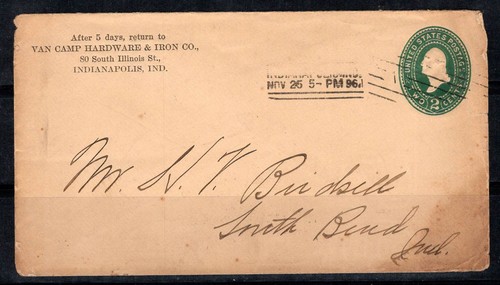 After 5 days, return to
VAN CAMP HARDWARE & IRON CO.,
80 South Illinois St.,
INDIANAPOLIS, IND.
UNITED STATES POSTAGE
2
TWO CENTS
INDIANAPOLIS, IND.
NOV 25 5-PM 96
Mr. H. V. Birdsell
South Bend
Ind.